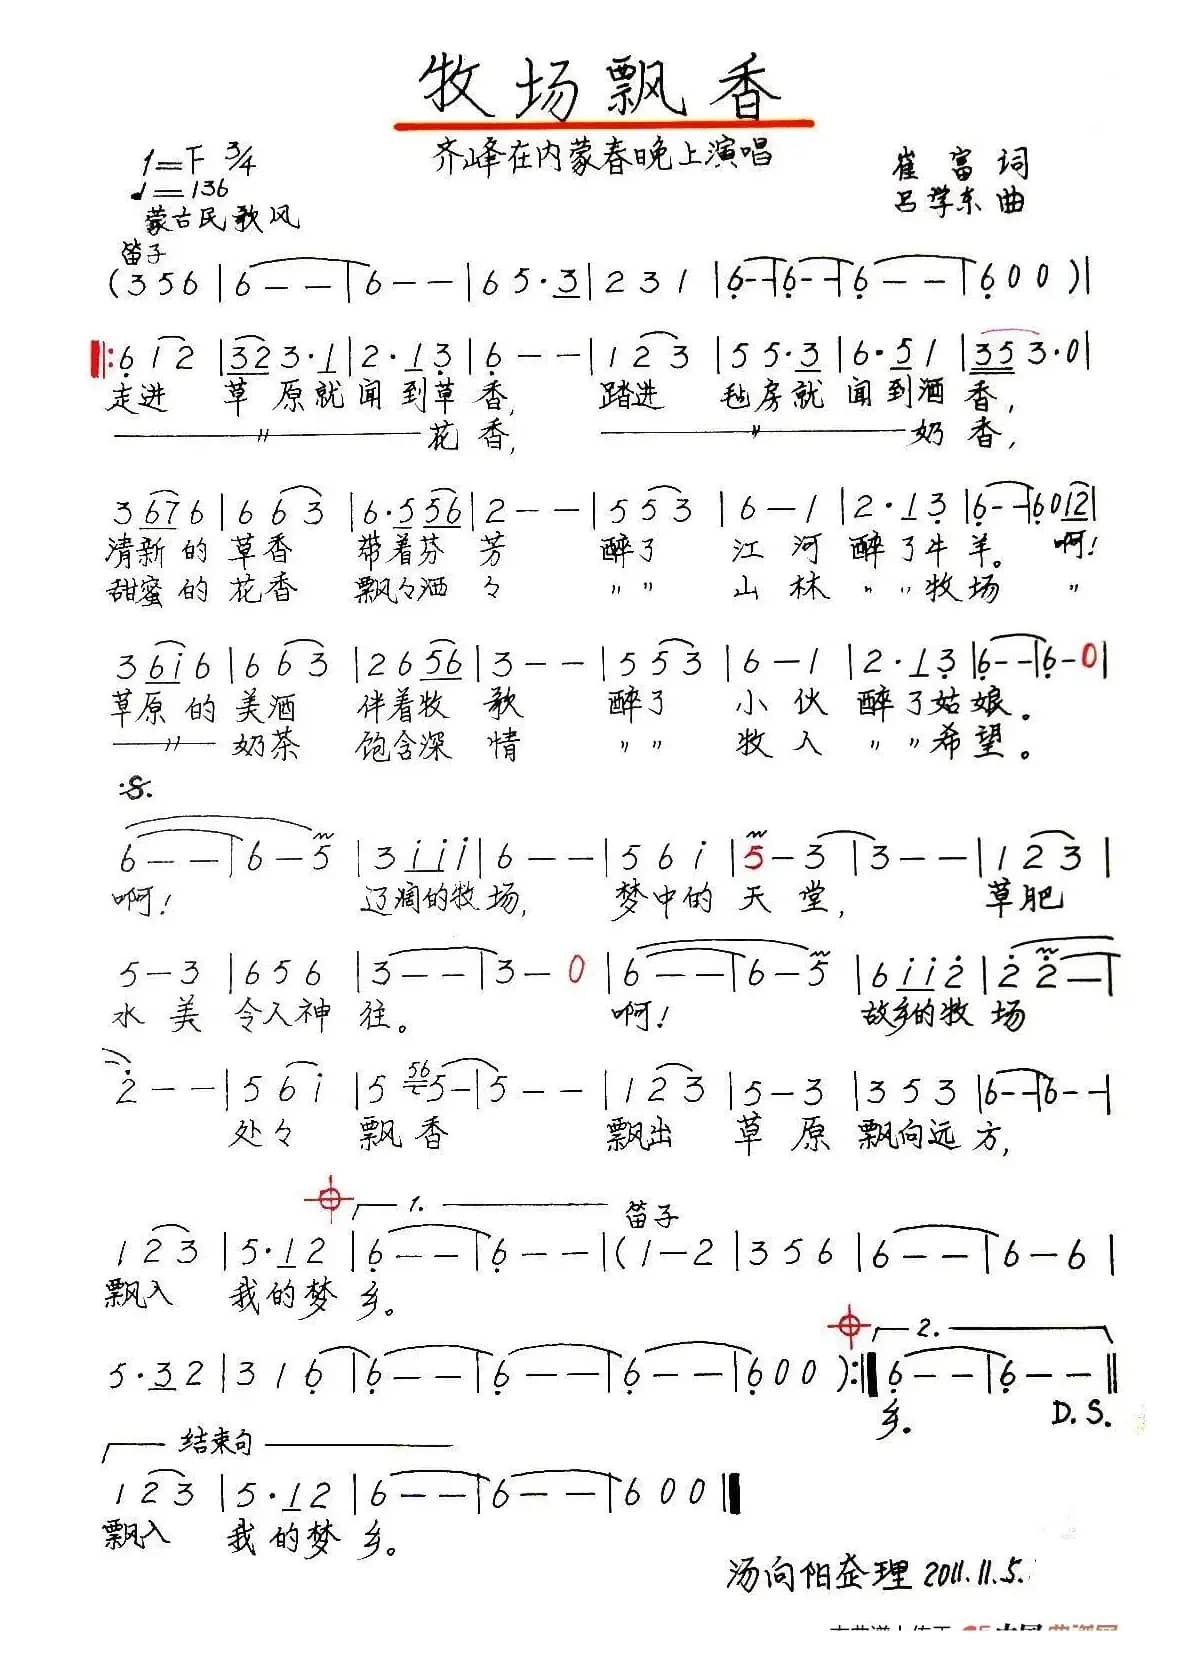 牧场飘香
齐峰在内蒙春晚上演唱
1=F 3/4
♩=136
蒙古民歌风
崔富词
吕学东曲
笛子
(3 5 6 | 6 - - | 6 - - | 6 5 · 3 | 2 3 1 | 6 - - | 6 - - | 6 - - | 6 0 0 ) |
|: 6 1 2 | 3 2 3 · 1 | 2 · 1 3 | 6 - - | 1 2 3 | 5 5 · 3 | 6 · 5 1 | 3 5 3 · 0 |
走进 草原就闻到草香, 踏进 毡房就闻到酒香,
〃 花香, 〃 奶香,
3 6 7 6 | 6 6 3 | 6 · 5 5 6 | 2 - - | 5 5 3 | 6 - 1 | 2 · 1 3 | 6 - - | 6 0 1 2 |
清新的草香 带着芬芳 醉了 江河醉了牛羊。 啊!
甜蜜的花香 飘々洒々 〃 〃 山林 〃 〃 牧场 〃
3 6 i 6 | 6 6 3 | 2 6 5 6 | 3 - - | 5 5 3 | 6 - 1 | 2 · 1 3 | 6 - - | 6 - 0 |
草原的美酒 伴着牧歌 醉了 小伙醉了姑娘。
〃 奶茶 饱含深情 〃 〃 牧人 〃 〃 希望。
:S.
6 - - | 6 - 5 | 3 i i i | 6 - - | 5 6 i | 5 - 3 | 3 - - | 1 2 3 |
啊! 辽阔的牧场, 梦中的天堂, 草肥
5 - 3 | 6 5 6 | 3 - - | 3 - 0 | 6 - - | 6 - 5 | 6 i i 2 | 2 2 - |
水美 令人神往。 啊! 故乡的牧场
2 - - | 5 6 i | 5 56 5 - | 5 - - | 1 2 3 | 5 - 3 | 3 5 3 | 6 - - | 6 - - |
处々 飘香 飘出 草原飘向远方,
1. 笛子
1 2 3 | 5 · 1 2 | 6 - - | 6 - - | (1 - 2 | 3 5 6 | 6 - - | 6 - 6 |
飘入 我的梦乡。
2.
5 · 3 2 | 3 1 6 | 6 - - | 6 - - | 6 - - | 6 0 0 ) :| 6 - - | 6 - - ‖
乡。 D.S.
结束句
1 2 3 | 5 · 1 2 | 6 - - | 6 - - | 6 0 0 ‖
飘入 我的梦乡。
汤向阳整理 2011.11.5.